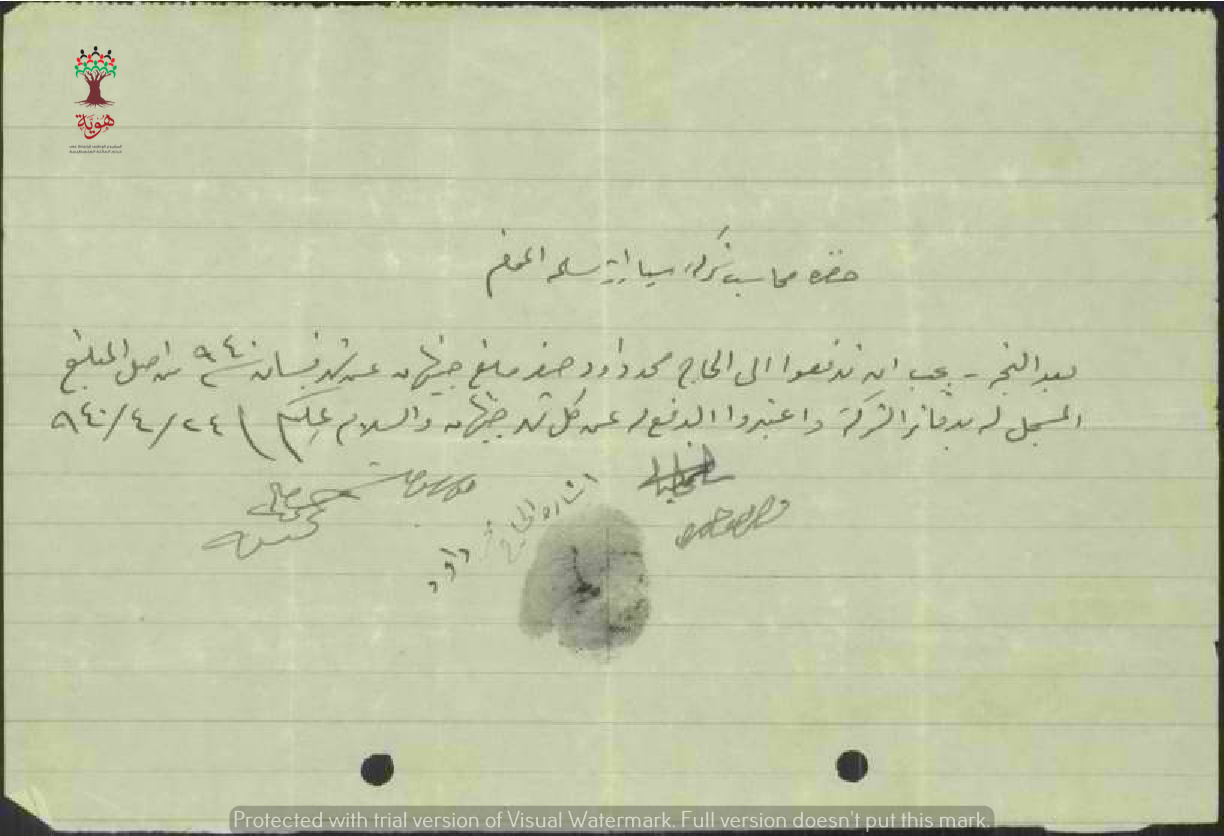 هوية
حضرة محاسب شركة سيارات سلمه المحترم
بعد التحية - يجب ان تدفعوا الى الحاج محمد داود صقر مبلغ جنيهان عن شهر نيسان سنة ٩٤٠ من اصل المبلغ
المسجل له بدفاتر الشركة واعتبروا الدفع له عن كل شهر جنيهان والسلام عليكم ٢٤/٤/٩٤٠
اشارة الحاج محمد داود
Protected with trial version of Visual Watermark. Full version doesn't put this mark.